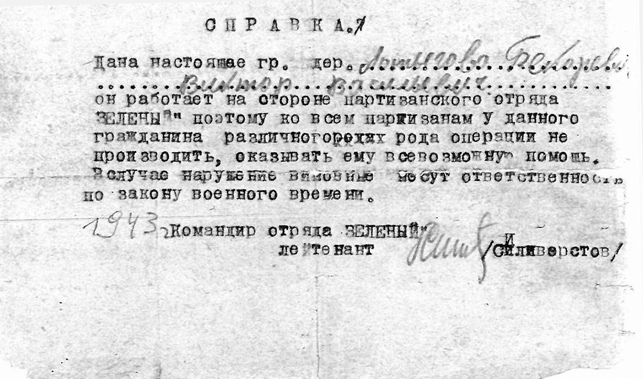 СПРАВКА.
Дана настоящае гр. дер.
Виктор Васильевич
он работает на стороне партизанского отряда
ЗЕЛЕНЫЙ" поэтому ко всем партизанам у данного
гражданина различного рода операции не
производить, оказывать ему всевозможную помощь.
Вслучае нарушение виновные несут ответственность
по закону военного времени.
1943г Командир отряда ЗЕЛЕНЫЙ"
лейтенант /СИливерстов/